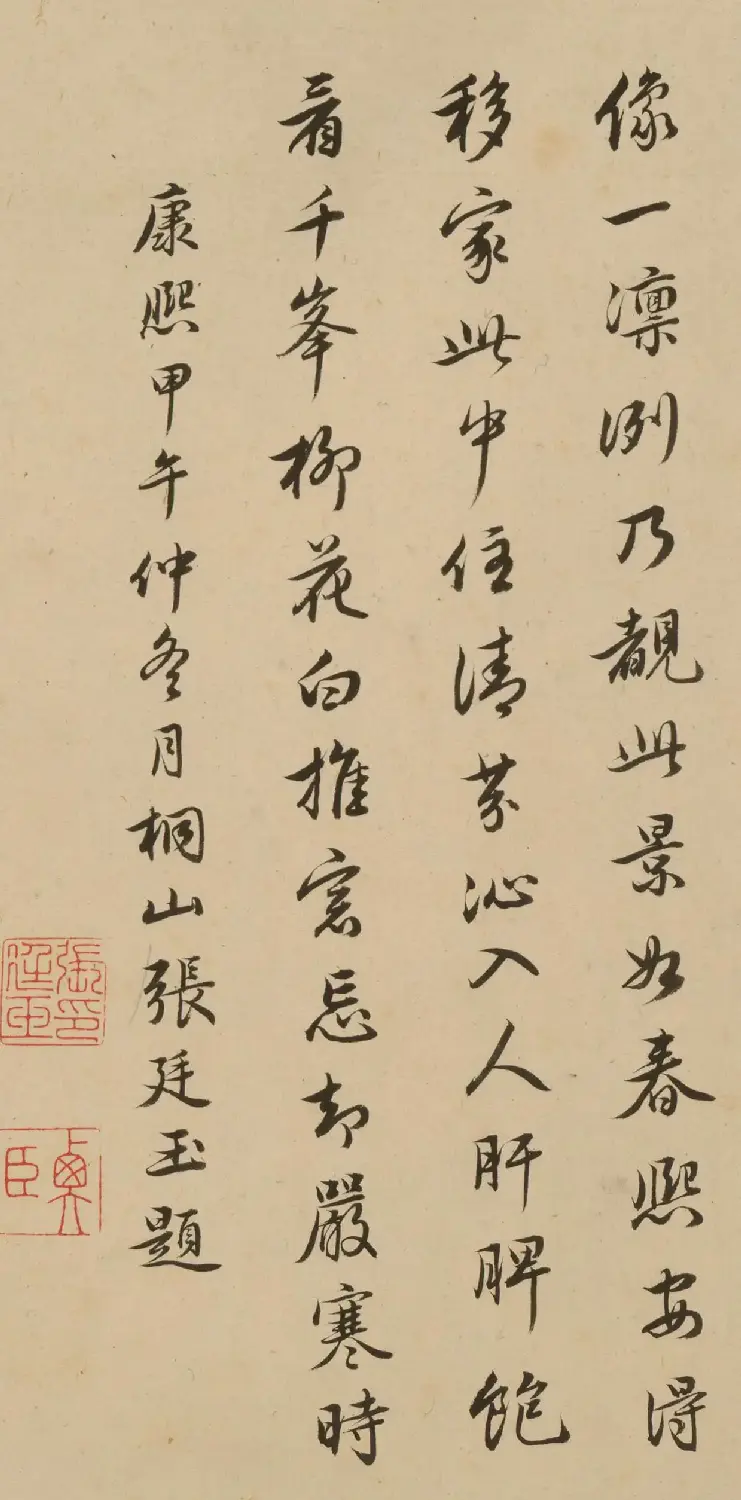 像一凛冽乃覩此景如春熙安得
移家此中住清芬沁入人肝脾飽
看千峯柳花白推窓忘却嚴寒時
康熙甲午仲冬月桐山張廷玉題
張廷玉印